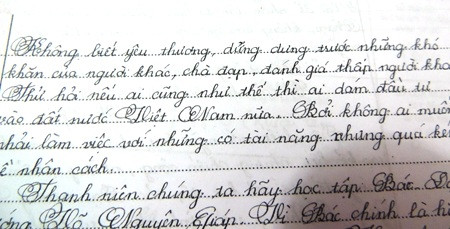 Không biết yêu thương, dửng dưng trước những khó
khăn của người khác, chà đạp, đánh giá thấp người khá
Thử hỏi nếu ai cũng như thế thì ai dám đầu tư
vào đất nước Việt Nam nữa. Bởi không ai muốn
phải làm việc với những có tài năng nhưng quá ké
ề nhân cách.
Thanh niên chúng ta hãy học tập Bác
Võ Nguyên Giáp. Bác chính là